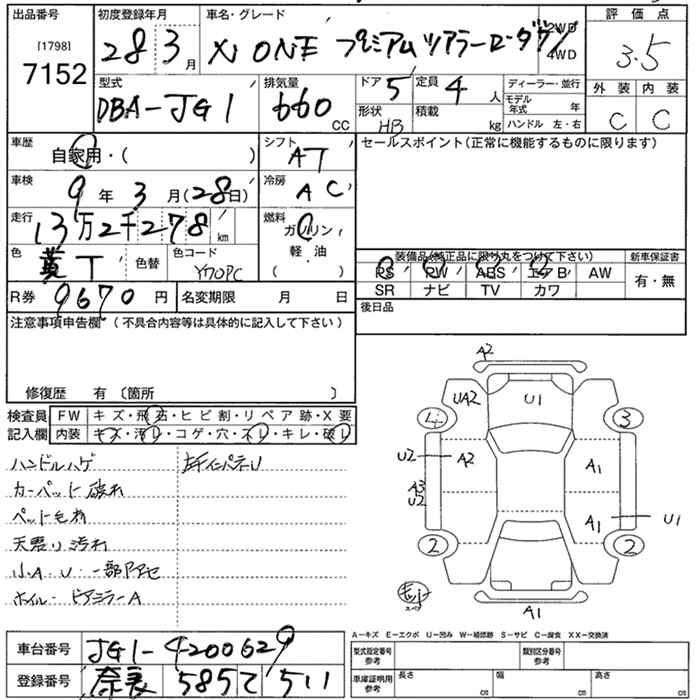 出品番号 初度登録年月 車名・グレード 評価点
[1798] 7152 28 3月 N ONE プレミアムツアラーローダウン 2WD 4WD 3.5
型式 排気量 ドア 定員 ディーラー・並行 外装 内装
DBA-JG1 660 CC 5 4 人 モデル年式 年 C C
形状 HB 積載 kg ハンドル 左・右
車歴 自家用・( ) シフト AT セールスポイント(正常に機能するものに限ります)
車検 9年 3月(28日) 冷房 AC
走行 13万2千278km 燃料 ガソリン・軽・油 ( )
色 黄T 色替 色コード Y70PC
装備品(純正品に限り丸をつけて下さい) 新車保証書
PS PW ABS エアB AW 有・無
SR ナビ TV カワ
R券 9670円 名変期限 月 日 後日品
注意事項申告欄(不具合内容等は具体的に記入して下さい)
修復歴 有〔箇所 〕
検査員 FW キズ・飛石・ヒビ割・リペア跡・X要
記入欄 内装 キズ・汚レ・コゲ・穴・スレ・キレ・破レ
ハンドルハゲ
カーペット破れ
ペット毛有
天張り汚れ
小A・U・一部アアセ
ホイル・ドアミラーA
A2
UA2 U1
4 3
U2 A2 A1
A3 U2
A1 U1
2 2
A1
A-キズ E-エクボ U-凹み W-補修跡 S-サビ C-腐食 XX-交換済
車台番号 JG1-4200629
登録番号 奈良 585 511
型式指定番号 参考 類別区分番号 参考
車庫証明用 参考 長さ cm 幅 cm 高さ cm